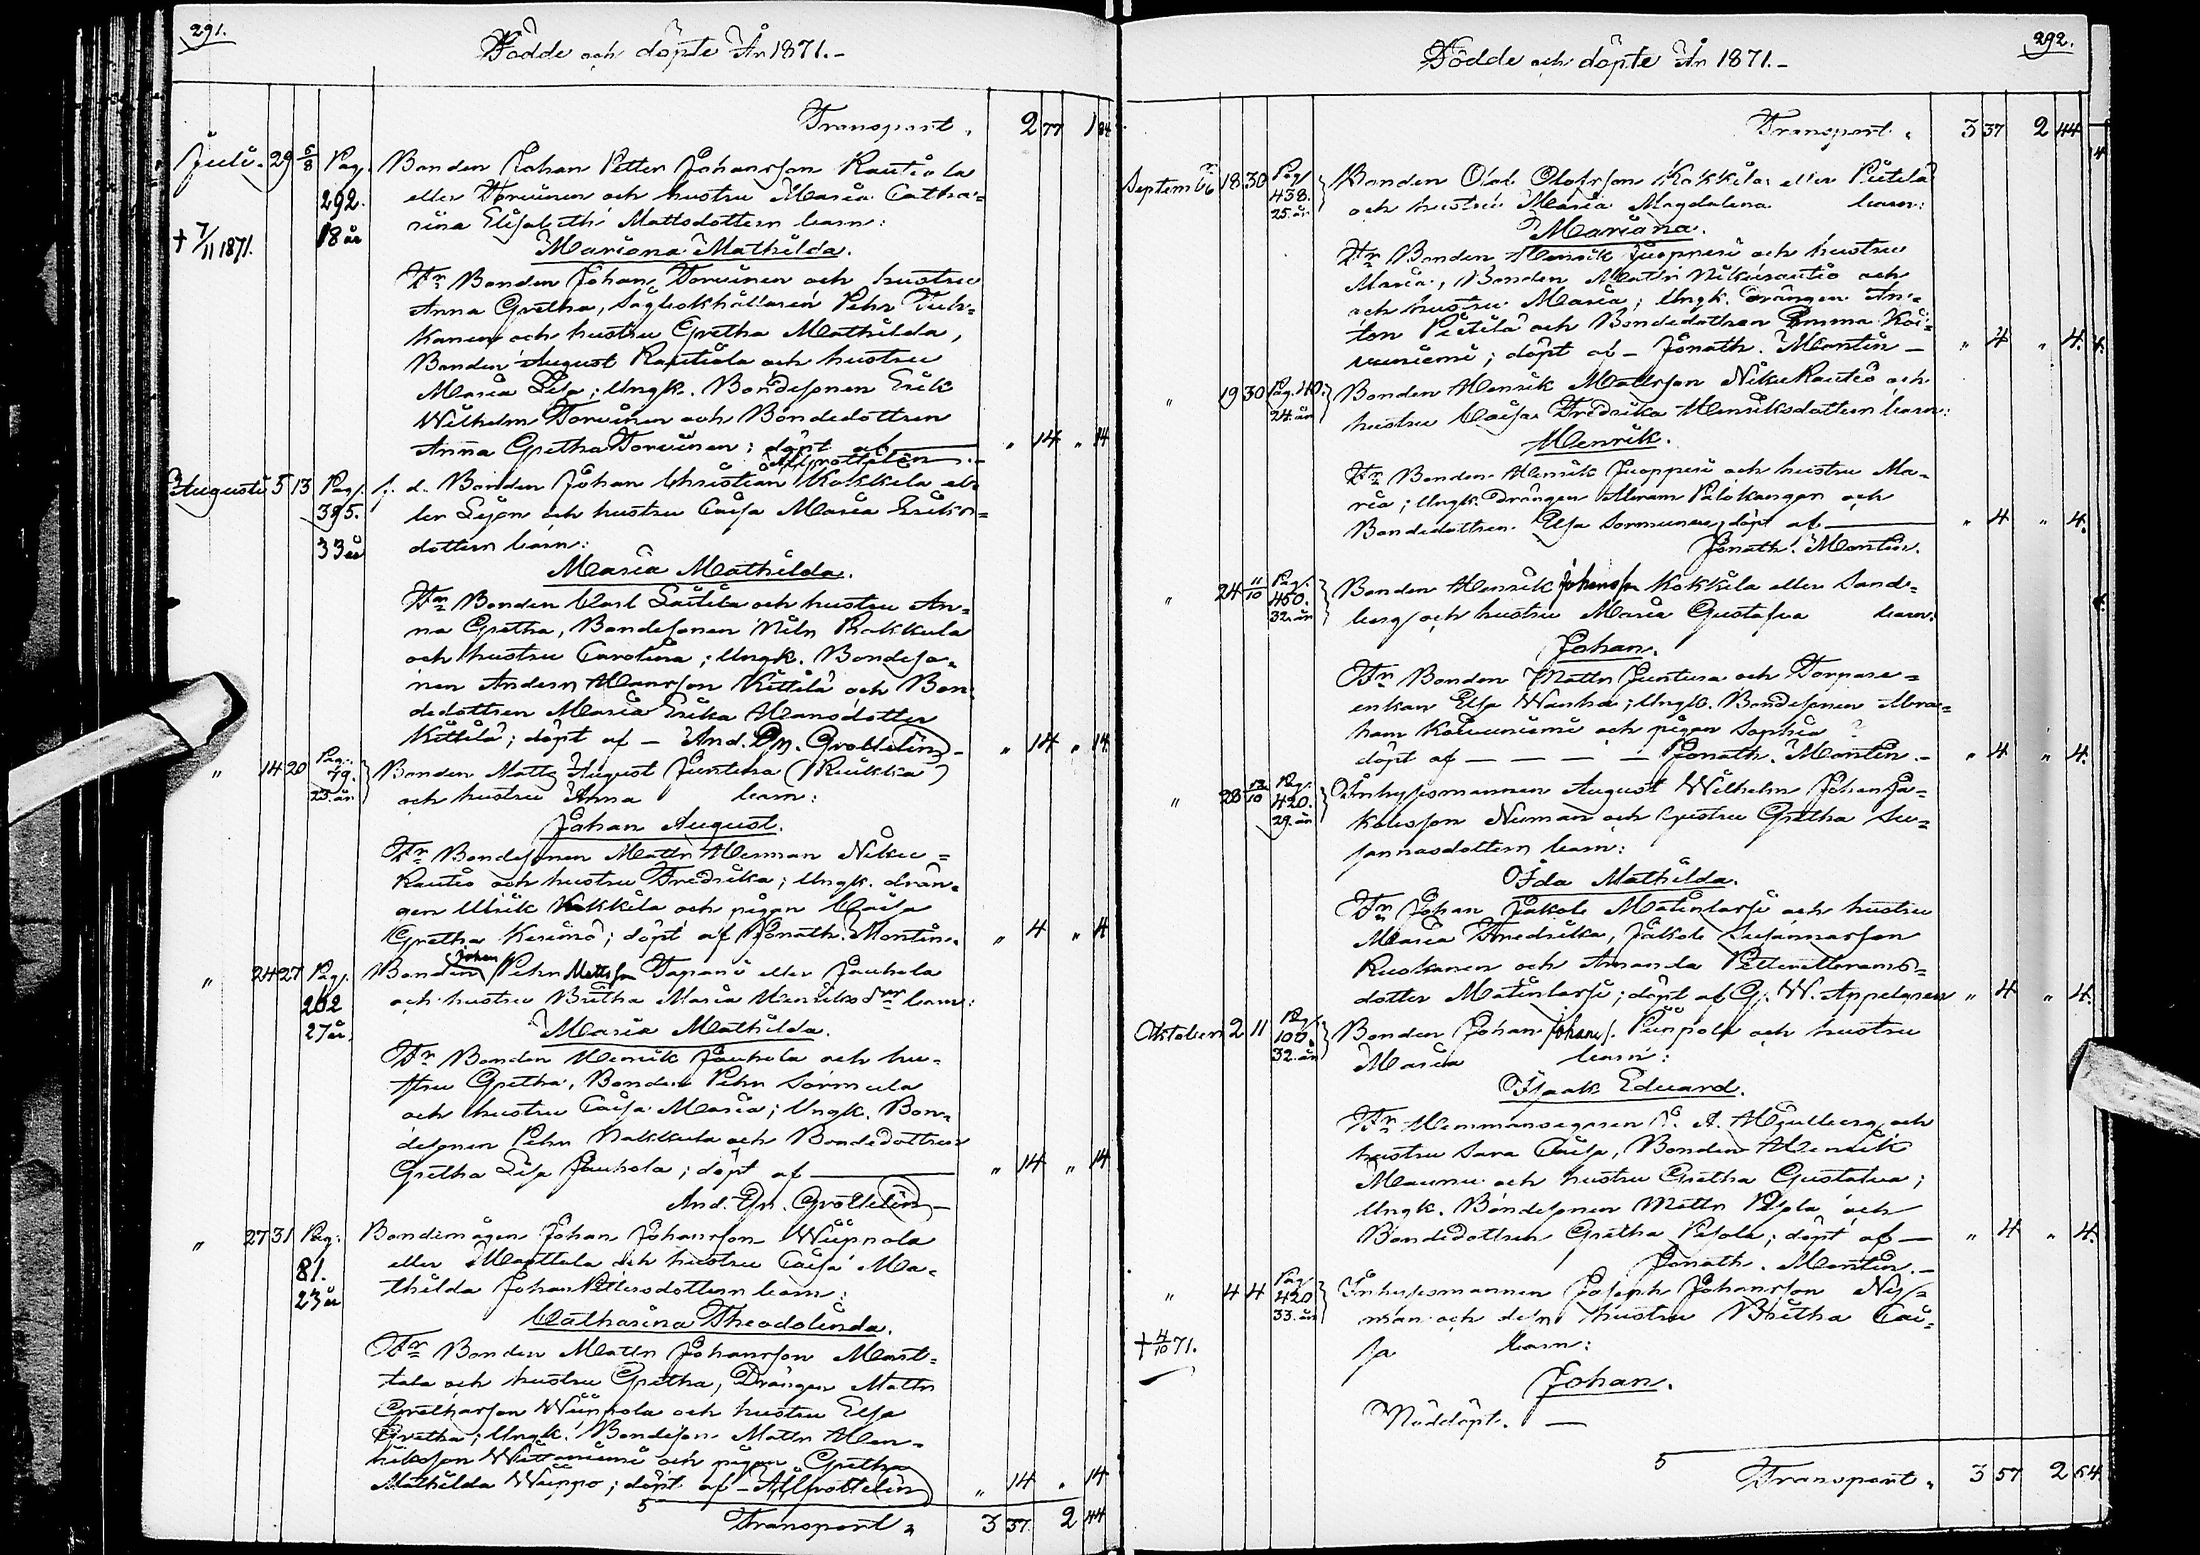 291.
Födde och döpte År 1871.-
Transport. 2 77 1 84
Juli. 29 5/8 Pag. Bonden Johan Petter Johansson Rautiola
292. eller Torvinen och hustru Maria Catha=
18 år rina Elisabeth Mattsdotters barn:
† 7/11 1871.
Mariana Mathilda.
Fr Bonden Johan Torvinen och hustru
Anna Gretha, Sågbokhållaren Pehr Tuis=
kanen och hustru Gretha Mathilda,
Bonden August Rautiola och hustru
Maria Lisa; Ungk. Bondesonen Erik
Wilhelm Torvinen och Bondedottren
Anna Gretha Torvinen; döpt af — " 14 " 14
Augusti 5 13 Pag. f. d. Bonden Johan Christian Kokkila el=
395. ler Sejon och hustru Caisa Maria Eriks=
33 år dotters barn:
Maria Mathilda.
Fr Bonden Carl Laitila och hustru An=
na Gretha, Bondesonen Nils Rokkula
och hustru Carolina; Ungk. Bondeso=
nen Anders Hansson Kittilä och Bon=
dedottren Maria Erika Hansdotter
Kittilä; döpt af — And. Gottelin — " 14 " 14
" 14 20 Pag. 79. 23 år Bonden Matts August Juntura (Ruikka)
och hustru Anna barn:
Johan August.
Fr Bondesonen Matts Herman Niku=
Rautio och hustru Fredrika; Ungk. drän=
gen Ulrik Kokkila och pigan Caisa
Gretha Kerimö; döpt af Jonath. Montin. " 4 " 4
" 24 27 Pag. Bonden Johan Pehr Mattsson Tapani eller Jauhola
262 och hustru Britha Maria Henriksdr barn:
27 år
Maria Mathilda.
Fr Bonden Henrik Jauhola och hu=
stru Gretha, Bonden Pehr Sormula
och hustru Caisa Maria; Ungk. Bon=
desonen Pehr Nakkula och Bondedottren
Gretha Lisa Jauhola; döpt af — " 14 " 14
And. Gottelin —
" 27 31 Pag. Bondemågen Johan Johansson Wuopola
81. eller Marttala och hustru Caisa Ma=
23 år thilda Johan Pettersdotters barn:
Catharina Theodolinda.
Fr Bonden Matts Johansson Mart=
tala och hustru Gretha, Drängen Matts
Grelsarson Wuopola och hustru Elsa
Gretha; Ungk. Bondeson Matts Hen=
riksson Wittaniemi och pigan Gretha
Mathilda Wuopio; döpt af — " 14 " 14
5
Transport " 3 37 2 44
292.
Födde och döpte År 1871.-
Transport. 3 37 2 44
Septemb. 18 30 Pag. 438. 25 år Bonden Olof Olofsson Kokkila eller Pietilä
och hustru Maria Magdalena barn:
Mariana.
Fr Bonden Henrik Juopperi och hustru
Maria, Bonden Matts Nikurautio och
och hustru Maria; Ungk. drängen An=
ton Pietilä och Bondedottren Emma Koi=
vuniemi; döpt af — Jonath. Montin — " 4 " 4.
" 19 30 Pag. 40. 24 år Bonden Henrik Mattsson NikuRautio och
hustru Caisa Fredrika Henriksdotters barn:
Henrik.
Fr Bonden Henrik Juopperi och hustru Ma=
ria; Ungk. drängen Abram Palokangas och
Bondedottren Elsa Sormunen; döpt af — " 4 " 4.
Jonath. Montin.
" 24 11/10 Pag. 450. 32 år Bonden Henrik Johansson Kokkila eller Sand=
berg och hustru Maria Gustafva barn:
Johan.
Fr Bonden Matts Juntura och Torpare=
enkan Elsa Wanha; Ungk. Bondesonen Abra=
ham Koivuniemi och pigan Sophia ?
döpt af — — — — Jonath. Montin. - " 4 " 4.
" 28 Pag. 420. 29 år Inhysesmannen August Wilhelm Johan Ja=
kobsson Numan och hustru Gretha Su=
sannasdotters barn:
Ida Mathilda.
Fr Johan Jakob Matinlassi och hustru
Maria Fredrika, Jakob Susannasson
Ruokanen och Amanda Petter Abrams=
dotter Matinlassi; döpt af G. W. Appelgren " 4 " 4.
Oktober 2 11 Pag. 100. 32 år Bonden Johan Johans. Piippola och hustru
Maria barn:
Isaak Eduard.
Fr Hemmansegaren A. Hjulberg och
hustru Sara Caisa, Bonden Henrik
Maunu och hustru Gretha Gustafva;
Ungk. Bondesonen Matts Pesola och
Bondedottren Gretha Pesola; döpt af — " 4 " 4.
Jonath. Montin. -
" 4 4 Pag. 420 33 år Inhysesmannen Joseph Johansson Ny=
man och dess hustru Britha Cai=
† 4/10 71. sa barn:
Johan.
Nöddöpt. —
5
Transport " 3 57 2 64